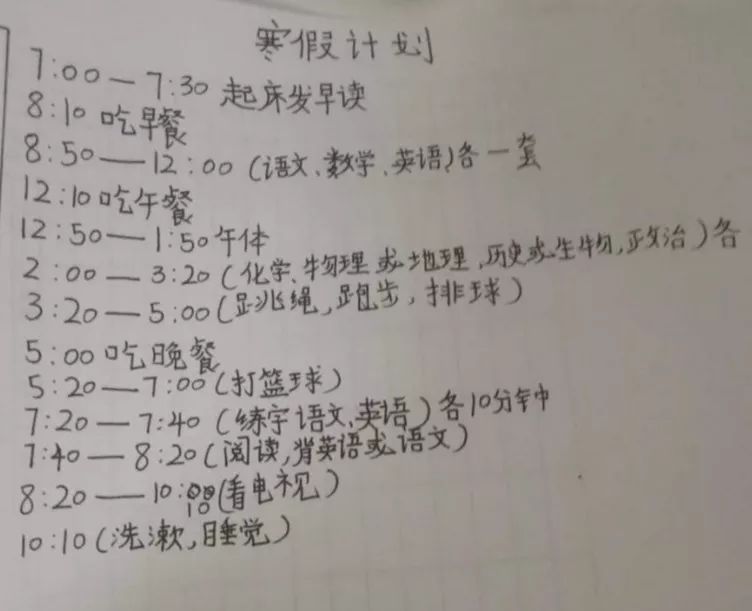 寒假计划
7:00—7:30 起床发早读
8:10 吃早餐
8:50—12:00 (语文、数学、英语)各一套
12:10 吃午餐
12:50—1:50 午体
2:00—3:20 (化学、物理或地理,历史或生物,政治)各
3:20—5:00 (跳绳,跑步,排球)
5:00 吃晚餐
5:20—7:00 (打篮球)
7:20—7:40 (练字语文、英语)各10分钟
7:40—8:20 (阅读,背英语或语文)
8:20—10:10 (看电视)
10:10 (洗漱,睡觉)